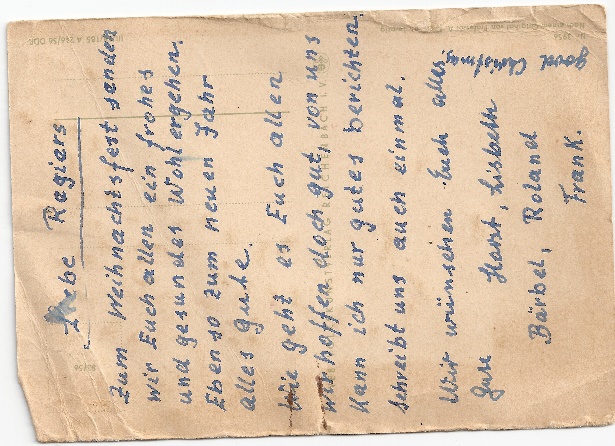 Liebe Regiers
Zum Weihnachtsfest senden
wir Euch allen ein frohes
und gesundes Wohlergehen.
Ebenso zum neuen Jahr
alles Gute.
Wie geht es Euch allen
wir hoffen doch gut, von uns
Kann ich nur gutes berichten
schreibt uns auch einmal.
Wir wünschen Euch alles
gute Horst, Lisbeth
Bärbel, Roland
Frank.
good Christmas
REICHENBACH I. V.
A 246/56 DDR